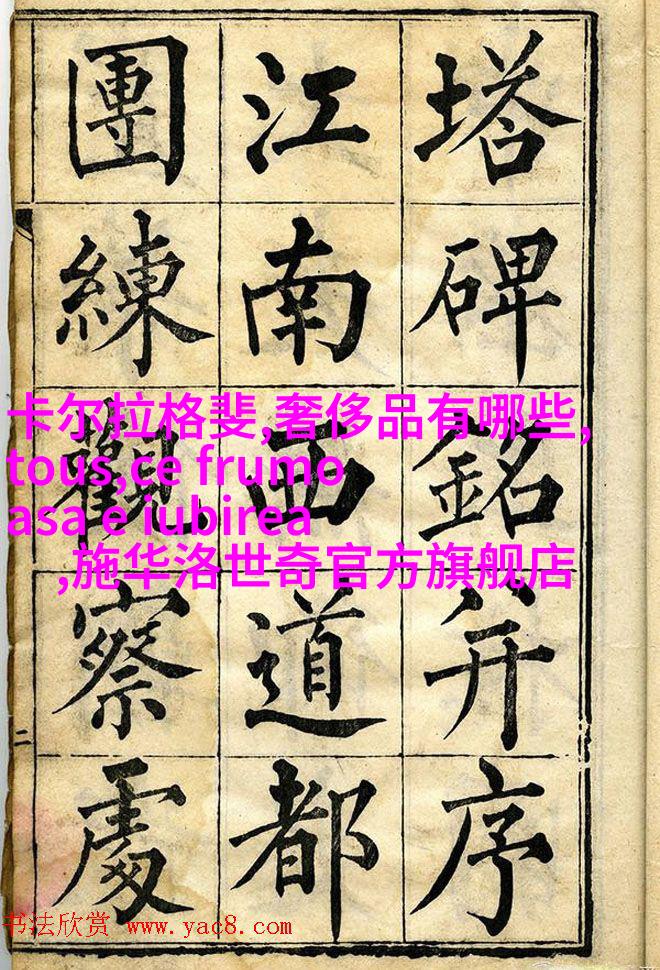 塔碑銘并序
江南西道都
團練觀察處
二
卡尔拉格斐,奢侈品有哪些,
tous,ce frumo
asa e iubirea
,施华洛世奇官方旗舰店
书法欣赏 www.yac8.com